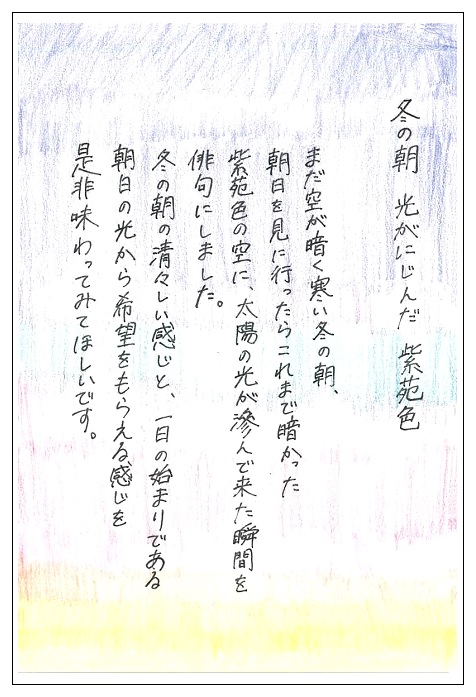 冬の朝　光がにじんだ　紫苑色
まだ空が暗く寒い冬の朝、
朝日を見に行ったらこれまで暗かった
紫苑色の空に、太陽の光が滲んで来た瞬間を
俳句にしました。
冬の朝の清々しい感じと、一日の始まりである
朝日の光から希望をもらえる感じを
是非味わってみてほしいです。